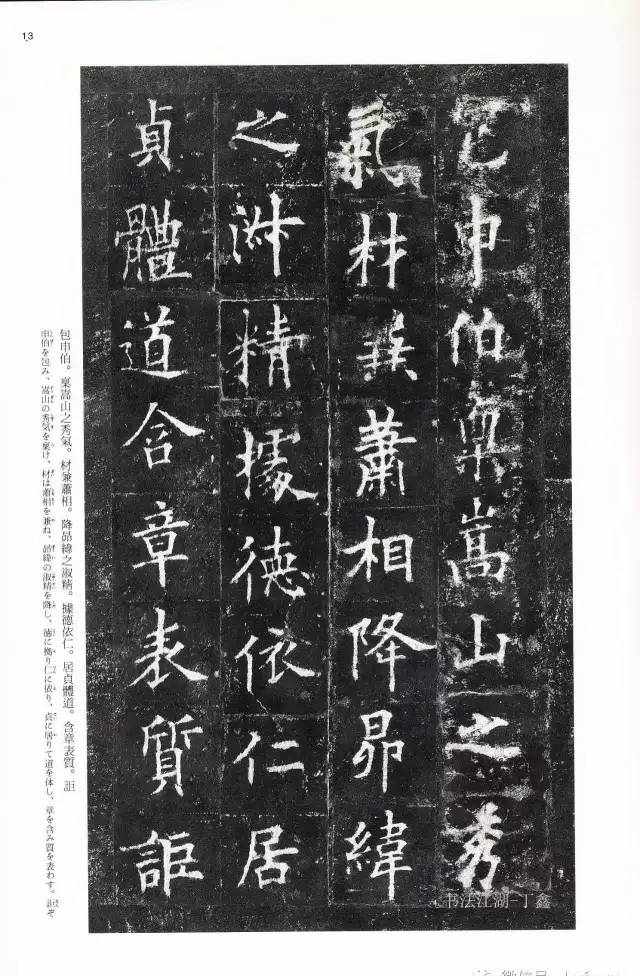 13
包申伯稟嵩山之秀
氣材兼蕭相降昴緯
之淑精據德依仁居
貞體道含章表質詎
包申伯。稟嵩山之秀氣。材兼蕭相。降昴緯之淑精。據德依仁。居貞體道。含章表質。詎
申伯を包み、嵩山の秀気を稟け、材は蕭相を兼ね、昴緯の淑精を降し、徳に拠り仁に依り、貞に居りて道を体し、章を含み質を表わす。詎ぞ
书法江湖-丁鑫